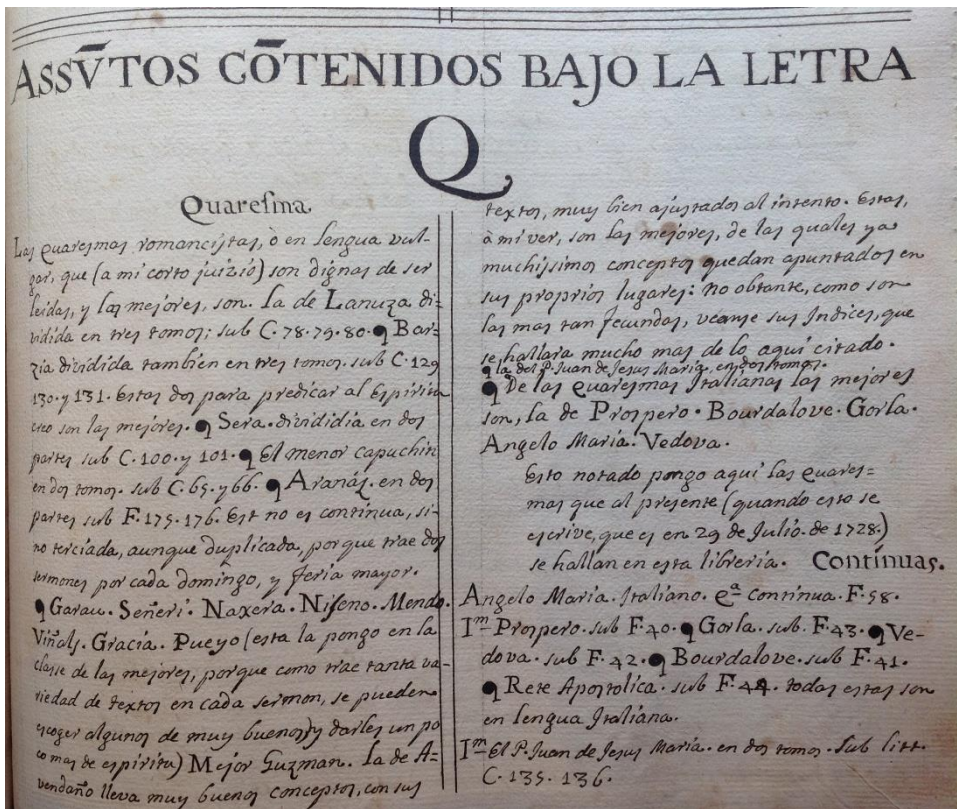 ASSV̄TOS CŌTENIDOS BAJO LA LETRA
Q
Quaresma.
Las quaresmas romancistas, ò en lengua vul-
gar, que (a mi corto juizio) son dignas de ser
leidas, y las mejores, son. la de Lanuza di-
vidida en tres tomos; sub C. 78. 79. 80. ¶ Bar-
zia dividida tambien en tres tomos. sub C. 129
130. y 131. estas dos para predicar al espiritu
creo son las mejores. ¶ Sera. divididia en dos
partes sub C. 100. y 101. ¶ El menor capuchin
en dos tomos. sub C. 65. y 66. ¶ Aranáz. en dos
partes sub F. 175. 176. Est no es continua, si-
no terciada, aunque duplicada, por que trae dos
sermones por cada domingo, y feria mayor.
¶ Garau. Señeri. Naxera. Niseno. Mendo.
Viñals. Gracia. Pueyo (esta la pongo en la
classe de las mejores, porque como trae tanta va-
riedad de textos en cada sermon, se pueden
escoger algunos de muy buenos) y darles un po
co mas de espiritu) Mejor Guzman. la de A-
vendaño lleva muy buenos conceptos, con sus
textos, muy bien ajustados al intento. Estas,
à mi ver, son las mejores, de las quales ya
muchissimos conceptos quedan apuntados en
sus proprios lugares: no obtante, como son
las mas tan fecundas, veanse sus Indices, que
se hallara mucho mas de lo aqui citado.
¶ la del P. Juan de Jesus Maria, en dos tomos.
¶ De las quaresmas Italianas las mejores
son, la de Prospero. Bourdalove. Gorla.
Angelo Maria. Vedova.
Esto notado pongo aqui las quares-
mas que al presente (quando esto se
escrive, que es en 29 de Julio. de 1728.)
se hallan en esta libreria. Contínuas.
Angelo Maria. Italiano. Qᵃ continua. F. 58.
Iᵐ Prospero. sub F. 40. ¶ Gorla. sub. F. 43. ¶ Ve-
dova. sub F. 42. ¶ Bourdalove. sub F. 41.
¶ Rete Apostolica. sub F. 44. todas estas son
en lengua Italiana.
Iᵐ El P. Juan de Jesus Maria. en dos tomos. Sub litt.
C. 135. 136.